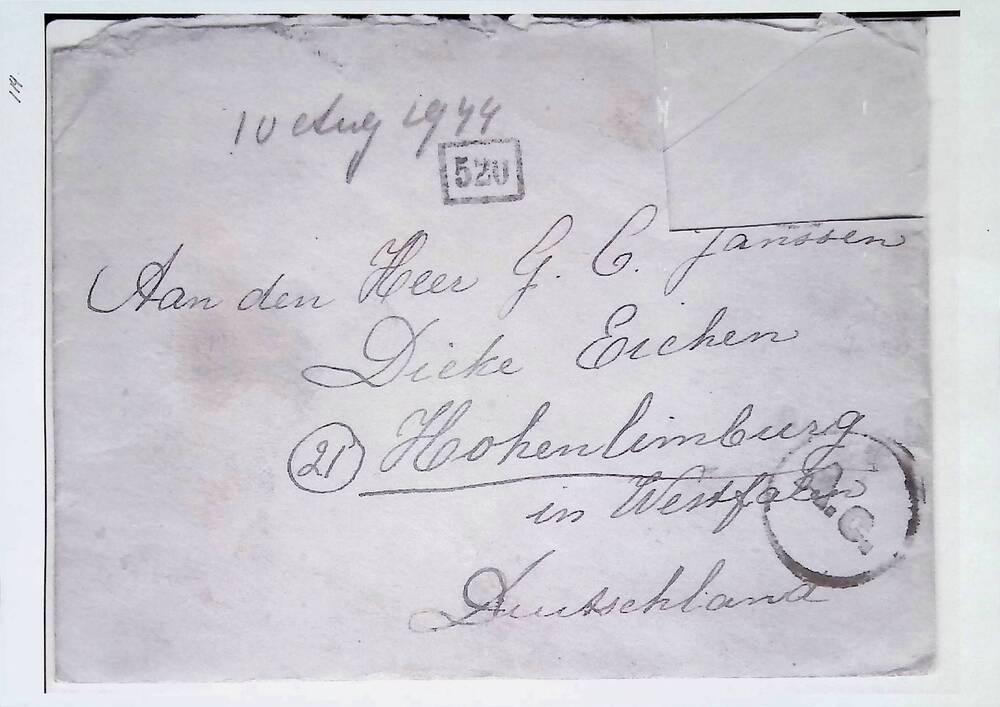 114
10 Aug 1944
520
Aan den Heer G. C. Janssen
Dicke Eichen
21 Hohenlimburg
in Westfalen
Deutschland